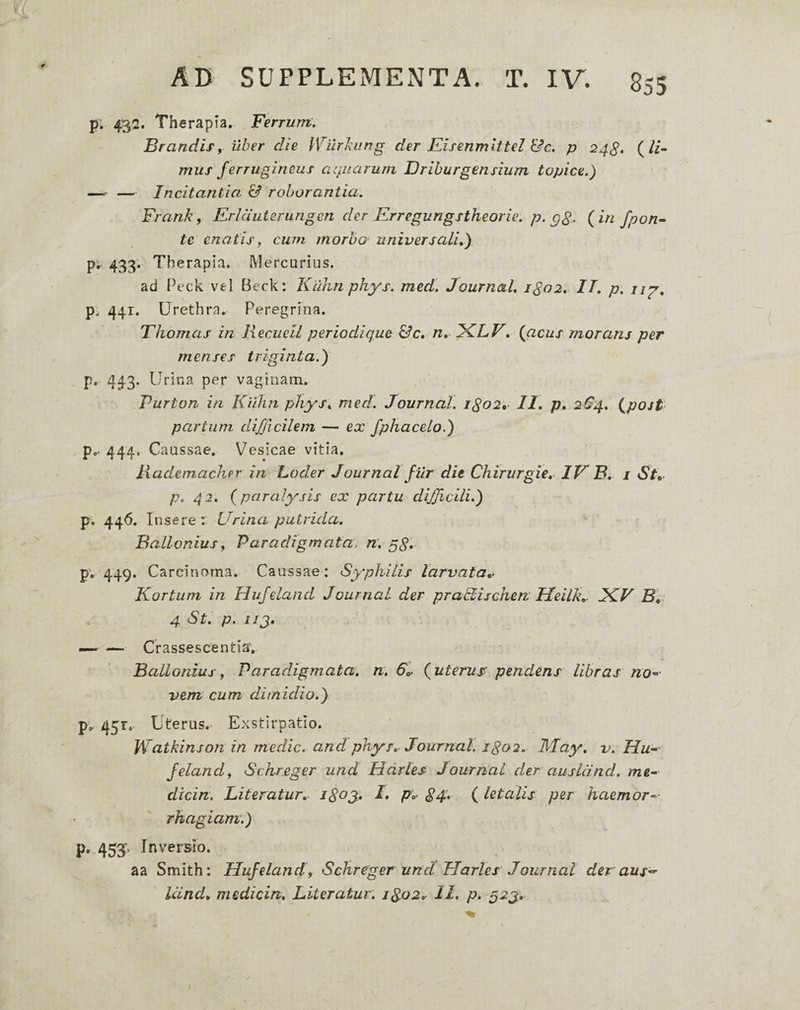 AD SUPPLEMENTA. T. IV. 855
p. 432. Therapia. Ferrum.
Brandis, über die Würkung der Eisenmittel &c. p 248. (li-
mus ferrugineus aquarum Driburgensium topice.)
— — Incitantia & roborantia.
Frank, Erläuterungen der Erregungstheorie. p. 98. (in spon-
te enatis, cum morbo universali.)
p. 433. Therapia. Mercurius.
ad Peck vel Beck: Kühn phys. med. Journal. 1802. II. p. 117.
p. 441. Urethra. Peregrina.
Thomas in Recueil periodique &c. n. XLV. (acus morans per
menses triginta.)
p. 443. Urina per vaginam.
Purton in Kühn phys. med. Journal. 1802. II. p. 264. (post
partum difficilem — ex sphacelo.)
p. 444. Caussae. Vesicae vitia.
Rademacher in Loder Journal für die Chirurgie. IV B. 1 St.
p. 42. (paralysis ex partu difficili.)
p. 446. Insere: Urina putrida.
Ballonius, Paradigmata. n. 58.
p. 449. Carcinoma. Caussae: Syphilis larvata.
Kortum in Hufeland Journal der practischen Heilk. XV B.
4 St. p. 113.
— — Crassescentia.
Ballonius, Paradigmata. n. 6. (uterus pendens libras no-
vem cum dimidio.)
p. 451. Uterus. Exstirpatio.
Watkinson in medic. and phys. Journal. 1802. May. v. Hu-
feland, Schreger und Harles Journal der ausländ. me-
dicin. Literatur. 1803. I. p. 84. (letalis per haemor-
rhagiam.)
p. 453. Inversio.
aa Smith: Hufeland, Schreger und Harles Journal der aus-
länd. medicin. Literatur. 1802. II. p. 523.